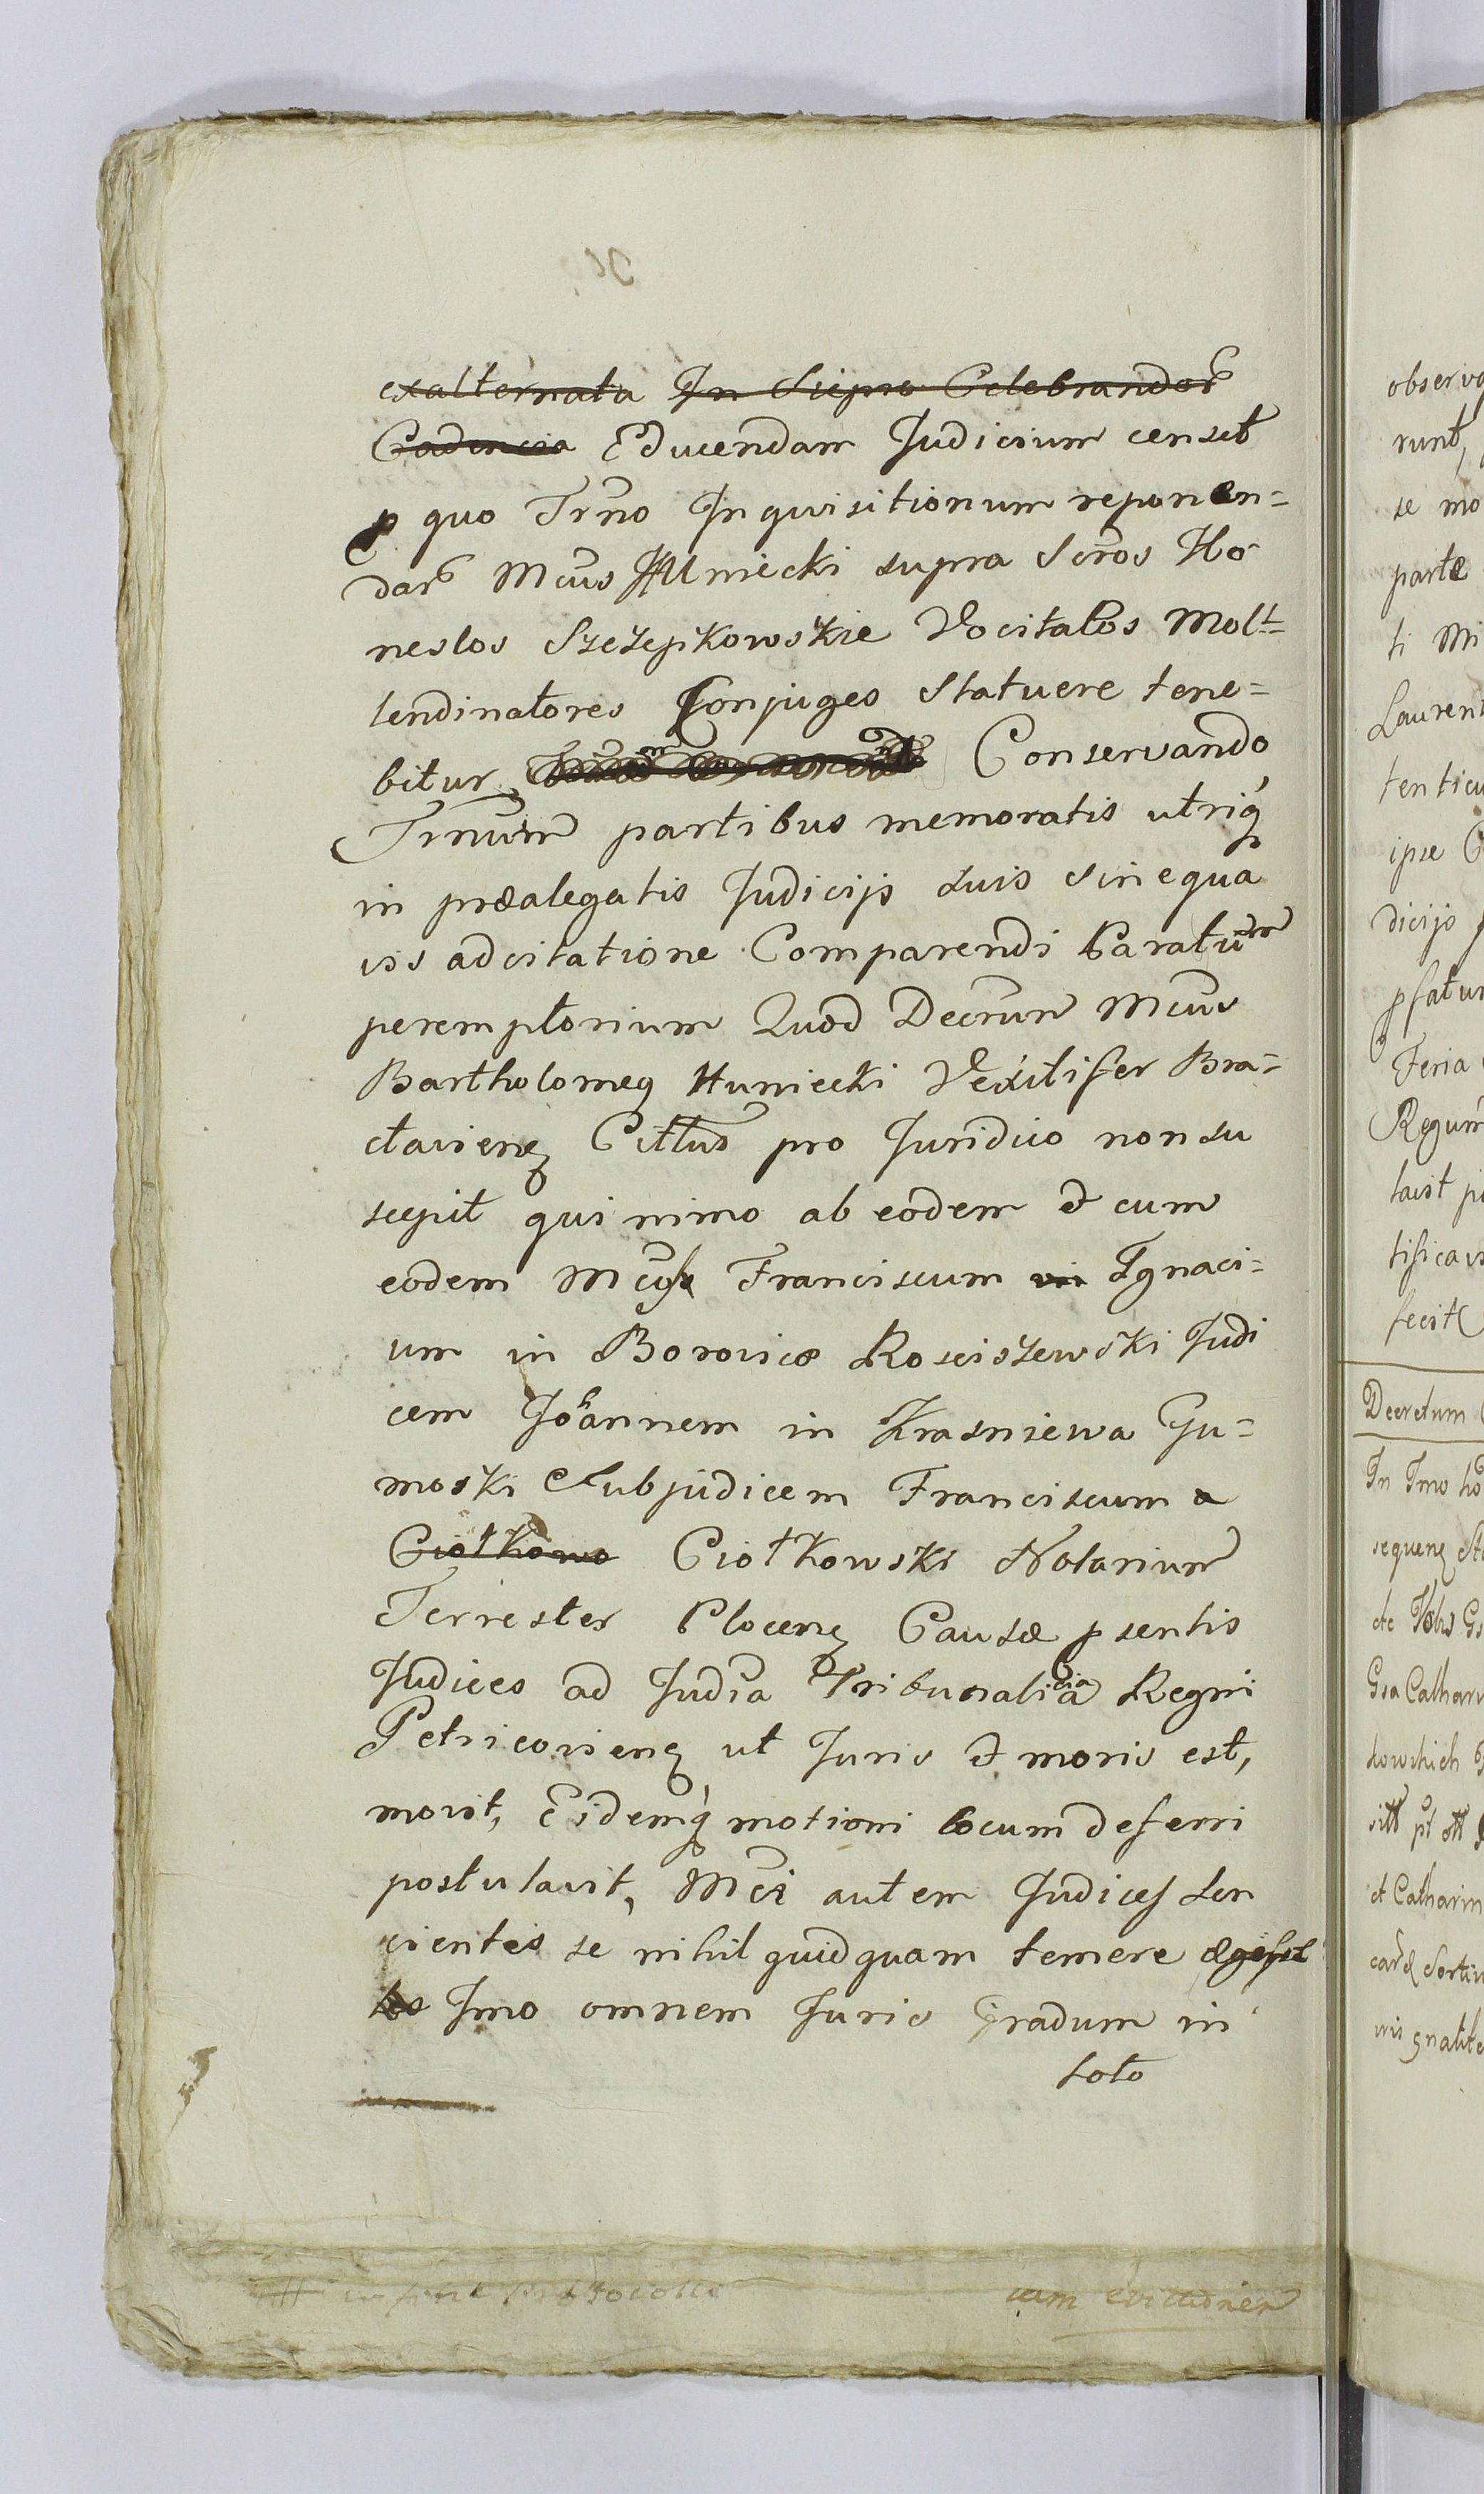 exalternata In Siepro Celebrandor
Cadencia Educendam Judicium censet
p quo Trno Inquisitionum reponen=
dar Mcus Huniecki supra Scros Ho
nestos Szczepkowskie Vocitatos Mol=
lendinatores Conjuges Statuere tene=
bitur Conservando
Trnum partibus memoratis utriq
in præalegatis Judicijs suis sine qua
vis adcitatione Comparendi Paratum
peremptorium Quod Decrum Mcus
Bartholomeq Huniecki Vexilifer Bra=
claviens Cittus pro Juridico non su
scepit qui nimo ab eodem et cum
eodem Franciscum Ignaci=
um in Borovice Rosciszewski Judi
cem Joannem in Krasniewa Gu=
moski Subjudicem Franciscum a
Ciołkowo Ciołkowski Notarium
Terrester Plocens Causæ psentis
Judices ad Judia Tribunalitia Regni
Petricoviens ut Juris et moris est,
movit, Eidemq motioni locum deferri
postulavit, Mci autem Judices Sen
cientes se nihil quidquam temere egisse
Imo omnem Juris Gradum in
toto
in fine protocolli
cum
observa
runt,
se mo
parte
ti Mi
Laurent
tenticu
ipse C
dicijs
pfatum
Feria
Regum
tavit pi
tificav
fecit
Decretum
In Tmo ho
sequens
etc
Gsa Cathari
kowskich
et Catharin